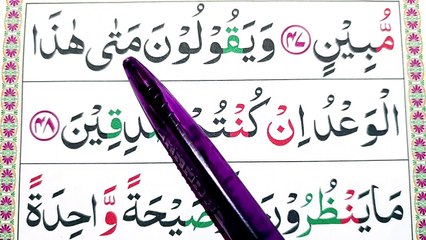 مُّبِيْنٍ ﴿٤٧﴾ وَيَقُوْلُوْنَ مَتٰى هٰذَا
الْوَعْدُ اِنْ كُنْتُمْ صٰدِقِيْنَ ﴿٤٨﴾
مَا يَنْظُرُوْنَ صَيْحَةً وَّاحِدَةً